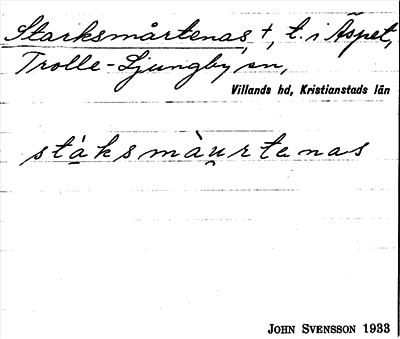 Starksmårtenas, †, t. i Äspet,
Trolle-Ljungby sn,
Villands hd, Kristianstads län
stáksmàu̯rtenas
JOHN SVENSSON 1933